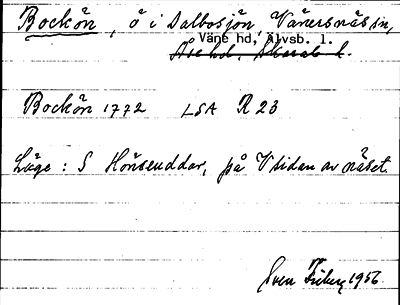 Bockön, ö i Dalbosjön, Vänersnäs sn,
Väne hd, Älvsb. l.
Åse hd, Skarab. l.
Bockön 1772 LSA R 23
Läge : S Hönseuddar, på V sidan av näset.
Sven 1956.